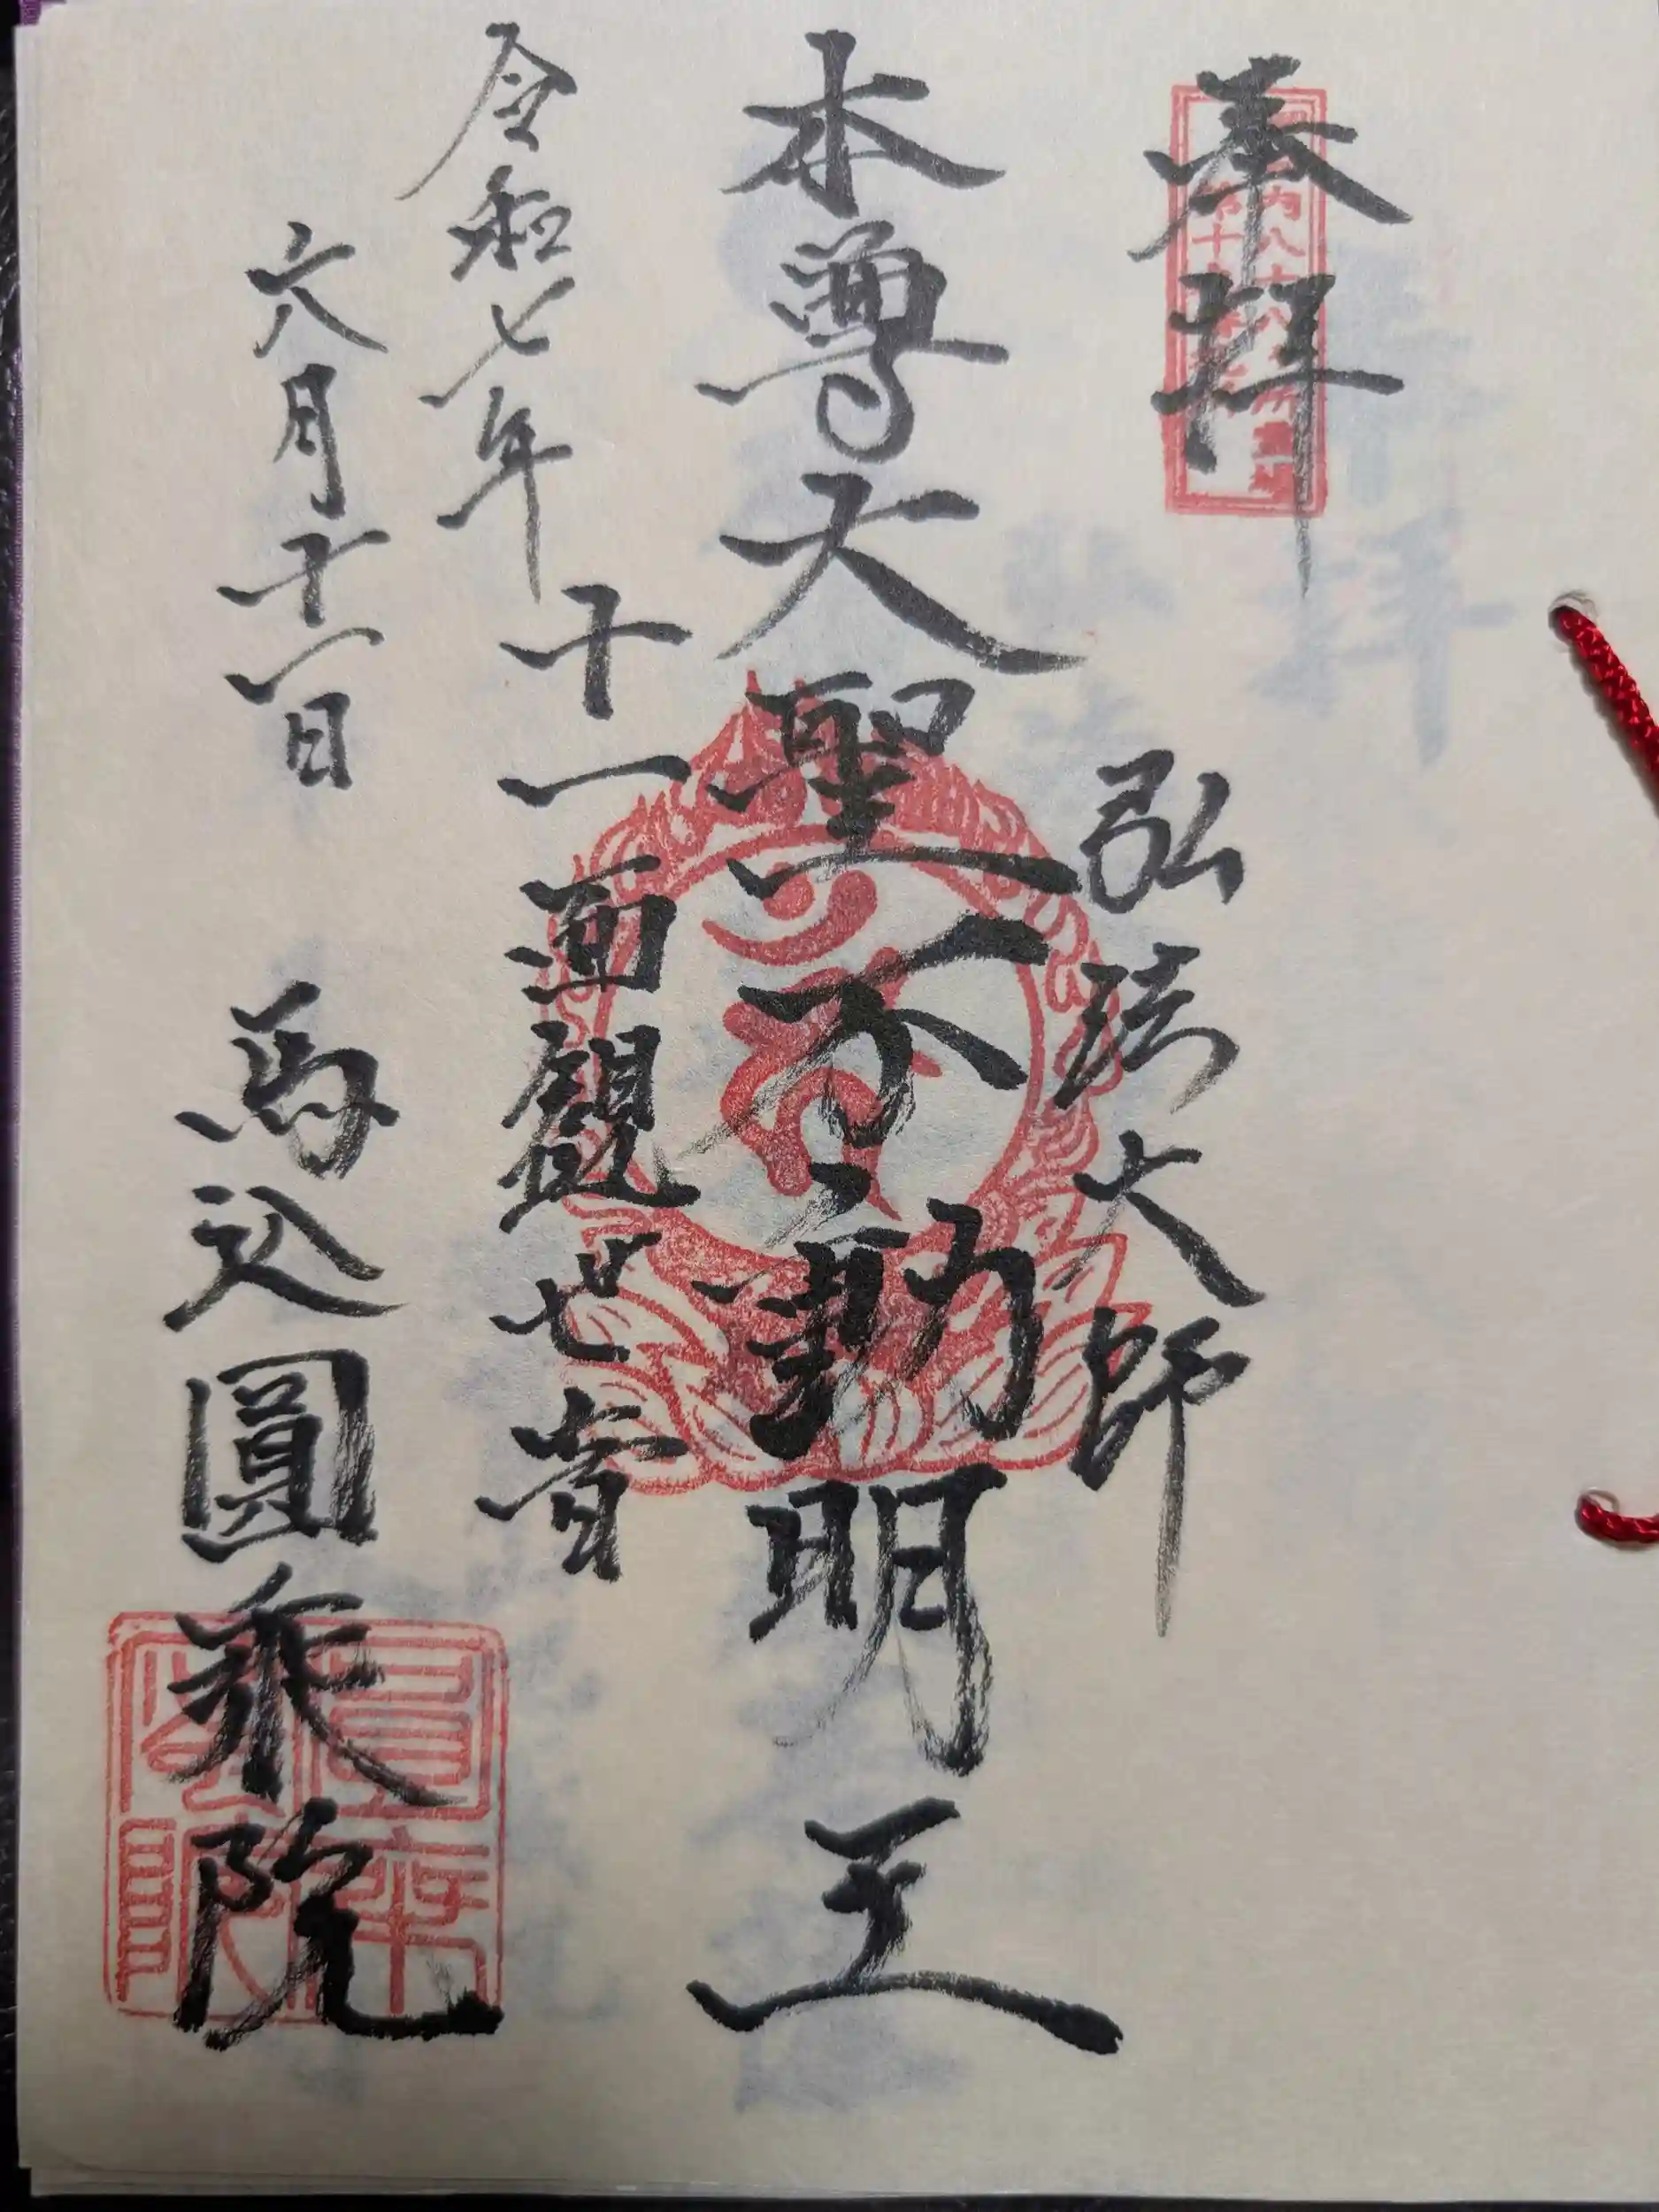 奉拜
弘法大師
本尊大聖不動明王
十一面観世音
令和七年
六月十一日
馬込圓乗院